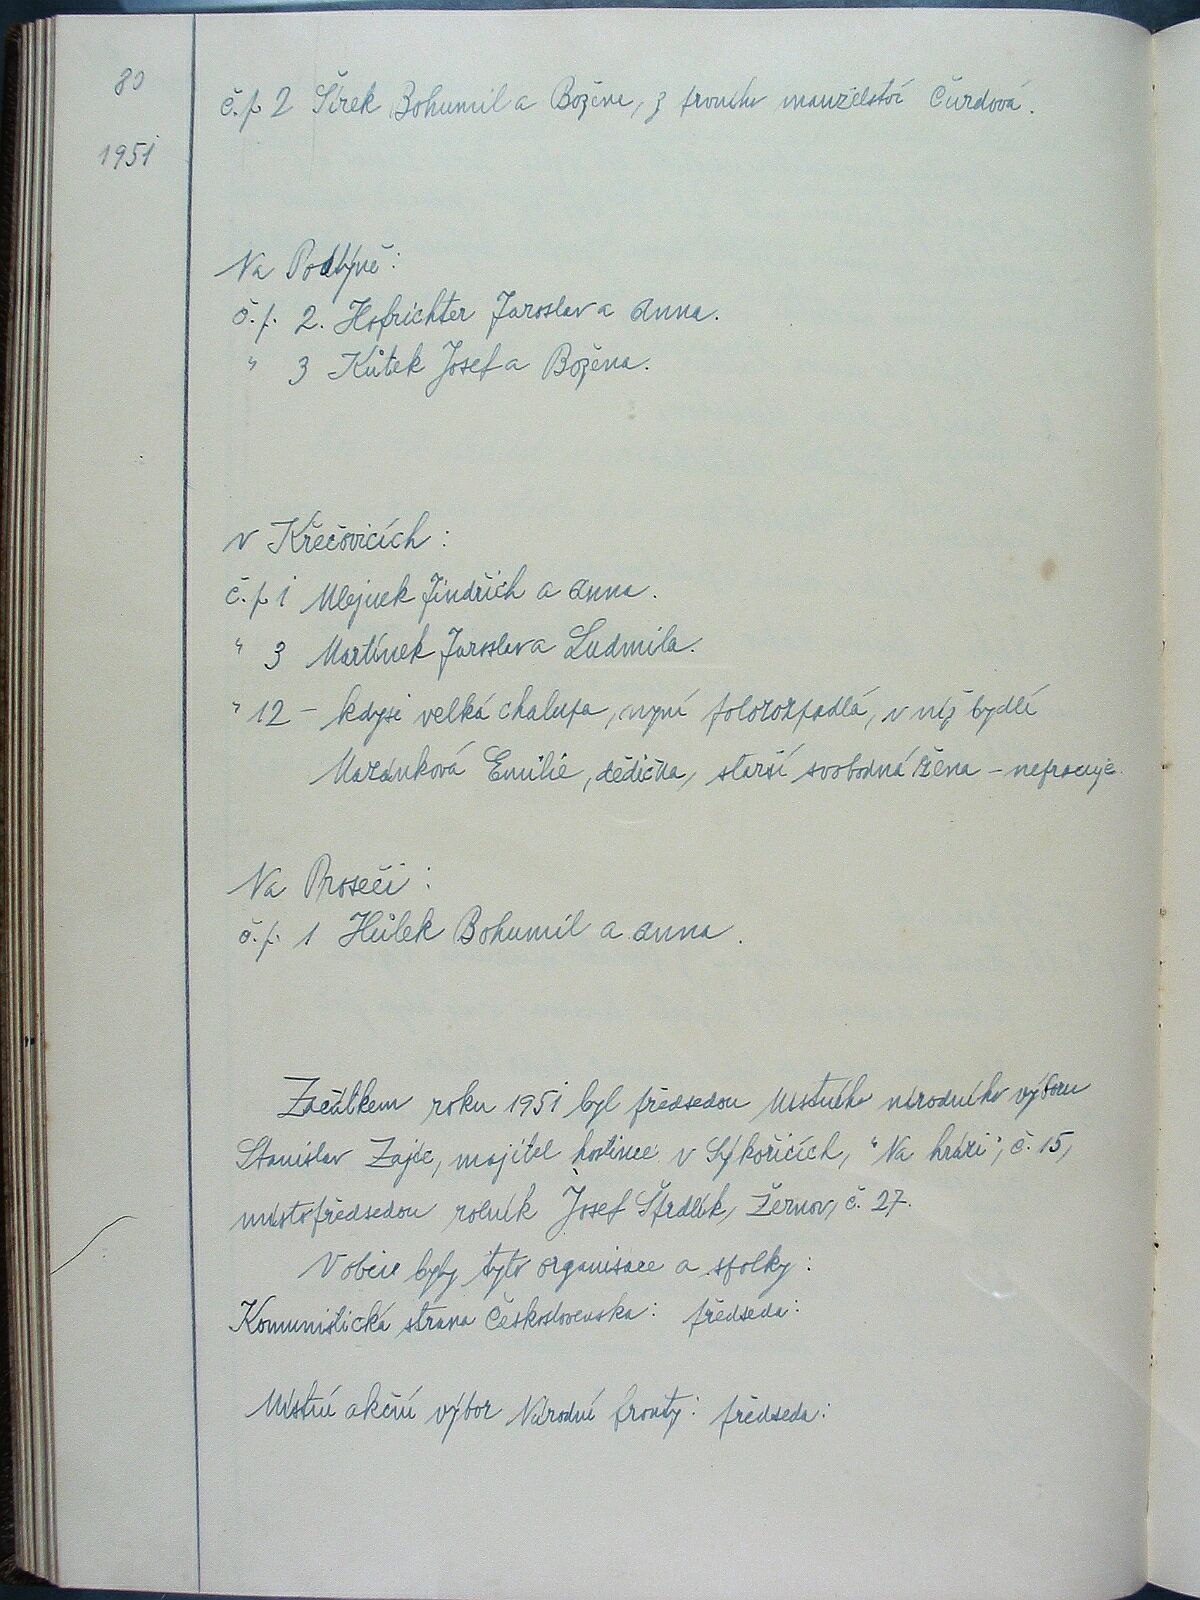 80
1951
č. p. 2 Šírek Bohumil a Božena, z prvního manželství Čurdová.
Na Podtýně:
č. p. 2. Hofrichter Jaroslav a Anna.
" 3 Kůtek Josef a Božena.
v Křečovicích:
č. p. 1 Mlejnek Jindřich a Anna.
" 3 Martínek Jaroslav a Ludmila.
" 12 – kdysi velká chalupa, nyní polorozpadlá, v níž bydlí
Mazánková Emilie, dědička, starší svobodná žena – nepracuje.
Na Proseči:
č. p. 1 Hůlek Bohumil a Anna.
Začátkem roku 1951 byl předsedou Místního národního výboru
Stanislav Zajíc, majitel hostince v Sýkořicích, "Na hrázi", č. 15,
místopředsedou rolník Josef Žernov, č. 27.
V obci byly tyto organisace a spolky:
Komunistická strana Československa: předseda:
Místní akční výbor Národní fronty: předseda: